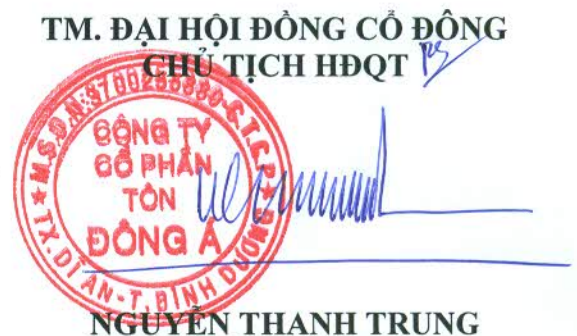 TM. ĐẠI HỘI ĐỒNG CỔ ĐÔNG
CHỦ TỊCH HĐQT
M.S.D.N:3700255880-C.T.C.P
CÔNG TY
CỔ PHẦN
TÔN
ĐÔNG Á
TX. DĨ AN - T. BÌNH DƯƠNG
NGUYỄN THANH TRUNG